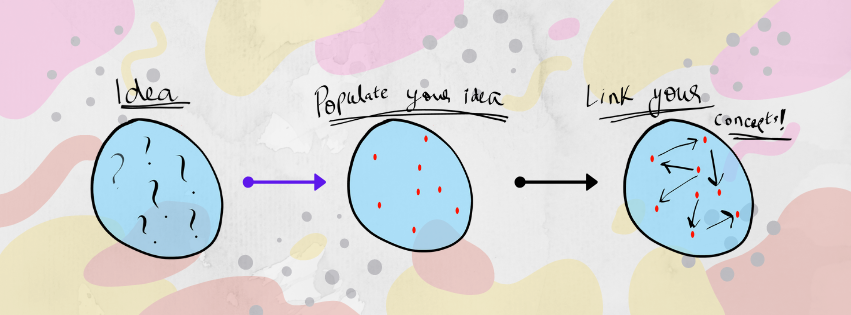 Idea
Populate your idea
Link your
concepts!
? ? ? ? ? ?